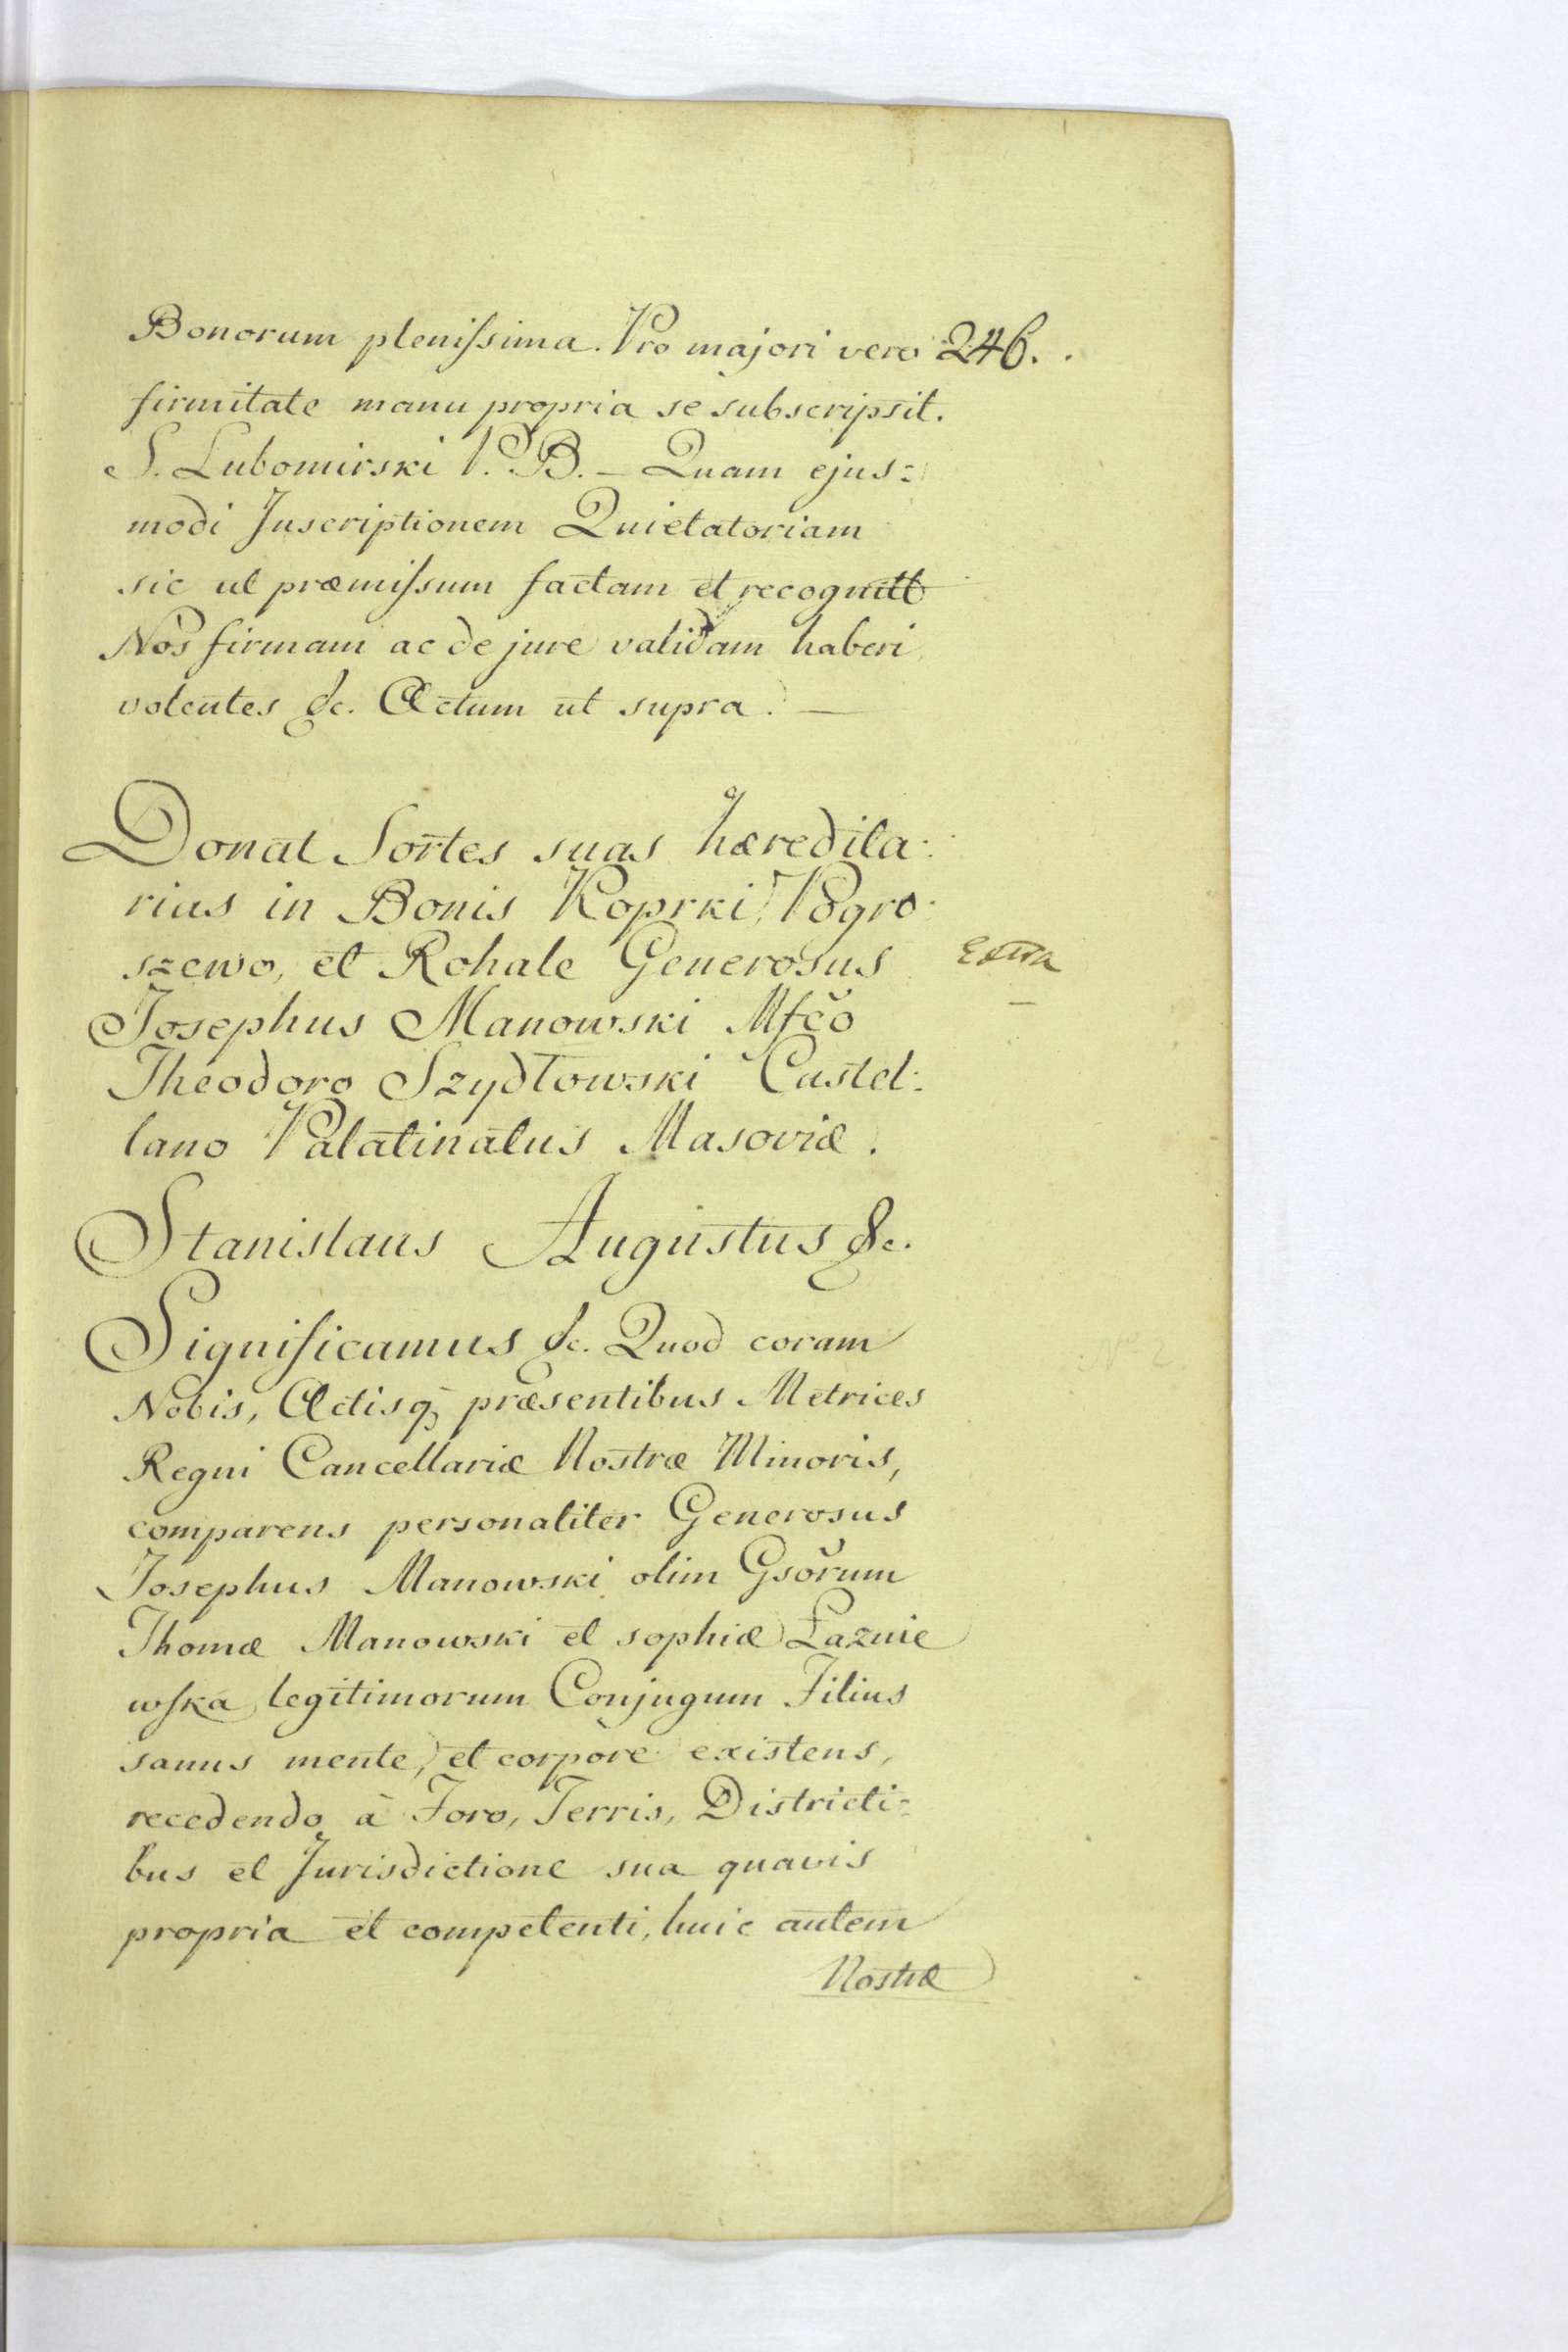 246.
Bonorum pleniſsima. Pro majori vero
firmitate manu propria se subscripsit.
S. Lubomirski P. B. – Quam ejus=
modi Inscriptionem Quietatoriam
sic ut præmiſsum factam et recognitt
Nos firmam ac de jure validam haberi
volentes &c. Actum ut supra. —
Donat Sortes suas hæredita:
rias in Bonis Koprki, Pogro:
szewo, et Rohale Generosus
Extra
Josephus Manowski Mfco
Theodoro Szydłowski Castel:
lano Palatinatus Masoviæ.
Stanislaus Augustus &c.
Significamus &c. Quod coram
Nobis, Actisq, præsentibus Metrices
Regni Cancellariæ Nostræ Minoris,
comparens personaliter Generosus
Josephus Manowski olim Gsorum
Thomæ Manowski et sophiæ Łaznie
wſka legitimorum Conjugum Filius
sanus mente, et corpore existens,
recedendo à Foro, Terris, Districti=
bus et Jurisdictione sua quavis
propria et competenti, huic autem
Nostræ